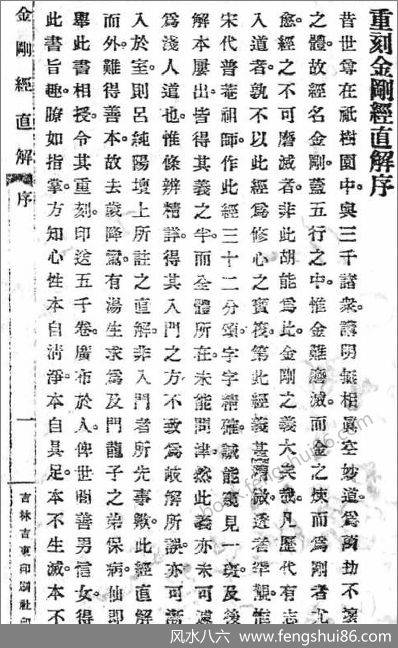 重刻金剛經直解序
昔世尊在祇樹園中與三千諸衆講明無相眞空妙道爲萬劫不滅
之體故經名金剛蓋五行之中惟金難磨滅而金之煉而爲剛者尤
愈經之不可磨滅者非此胡能爲此金剛之義大矣哉凡歷代有志
入道者孰不以此經爲修心之寶筏第此經義甚淵微透者罕覯惟
宋代普菴祖師作此經三十二分頌字字精確誠能窺見一斑及後
解本屢出皆得其義之半而全體所在未能問津然此義亦未可
爲淺人道也惟條辨精詳得其入門之方不致爲蔽解所誤亦可漸
入於室則呂純陽壇上所註之直解非入門者所先事歟此經直解
而外難得善本故去歲降鸞有湯生求爲及門龍子之弟保病仙卽
舉此書相授令其重刻印送五千卷廣布於人俾世間善男信女得
此書旨趣瞭如指掌方知心性本自清淨本自具足本不生滅本不
金剛經直解 序 一 吉林吉東印刷社印
风水八六 www.fengshui86.com